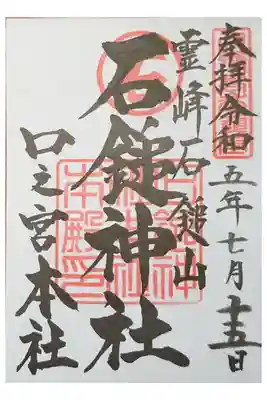 奉拝令和五年七月十五日
霊峰石鎚山
石鎚神社
口之宮本社